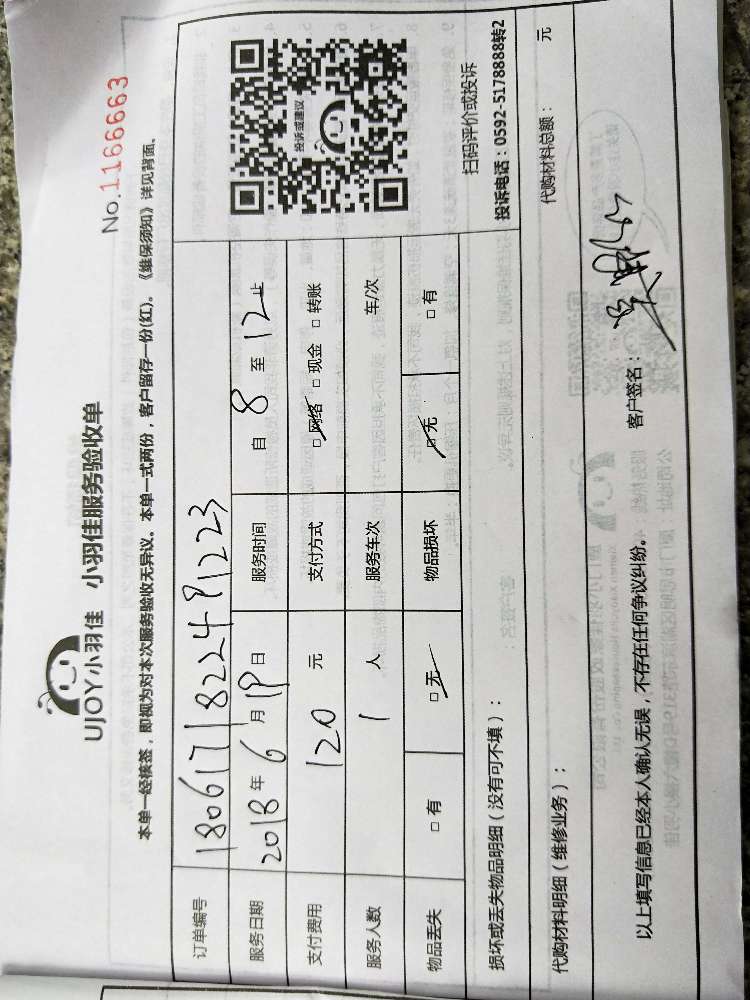 No.1166663
UJOY小羽佳 小羽佳服务验收单
本单一经核签，即视为对本次服务验收无异议。本单一式两份，客户留存一份(红)。《维保须知》详见背面。
订单编号 180617182249 1223
服务日期 2018年6月19日 服务时间 自8至12止
支付费用 120元 支付方式 □网络 □现金 □转账
服务人数 1人 服务车次 车/次
物品丢失 □有 □无 物品损坏 □无 □有
投诉或建议
扫码评价或投诉
投诉电话：0592-5178888转2
损坏或丢失物品明细（没有可不填）：
代购材料明细（维修业务）： 代购材料总额： 元
以上填写信息已经本人确认无误，不存在任何争议纠纷。 客户签名：